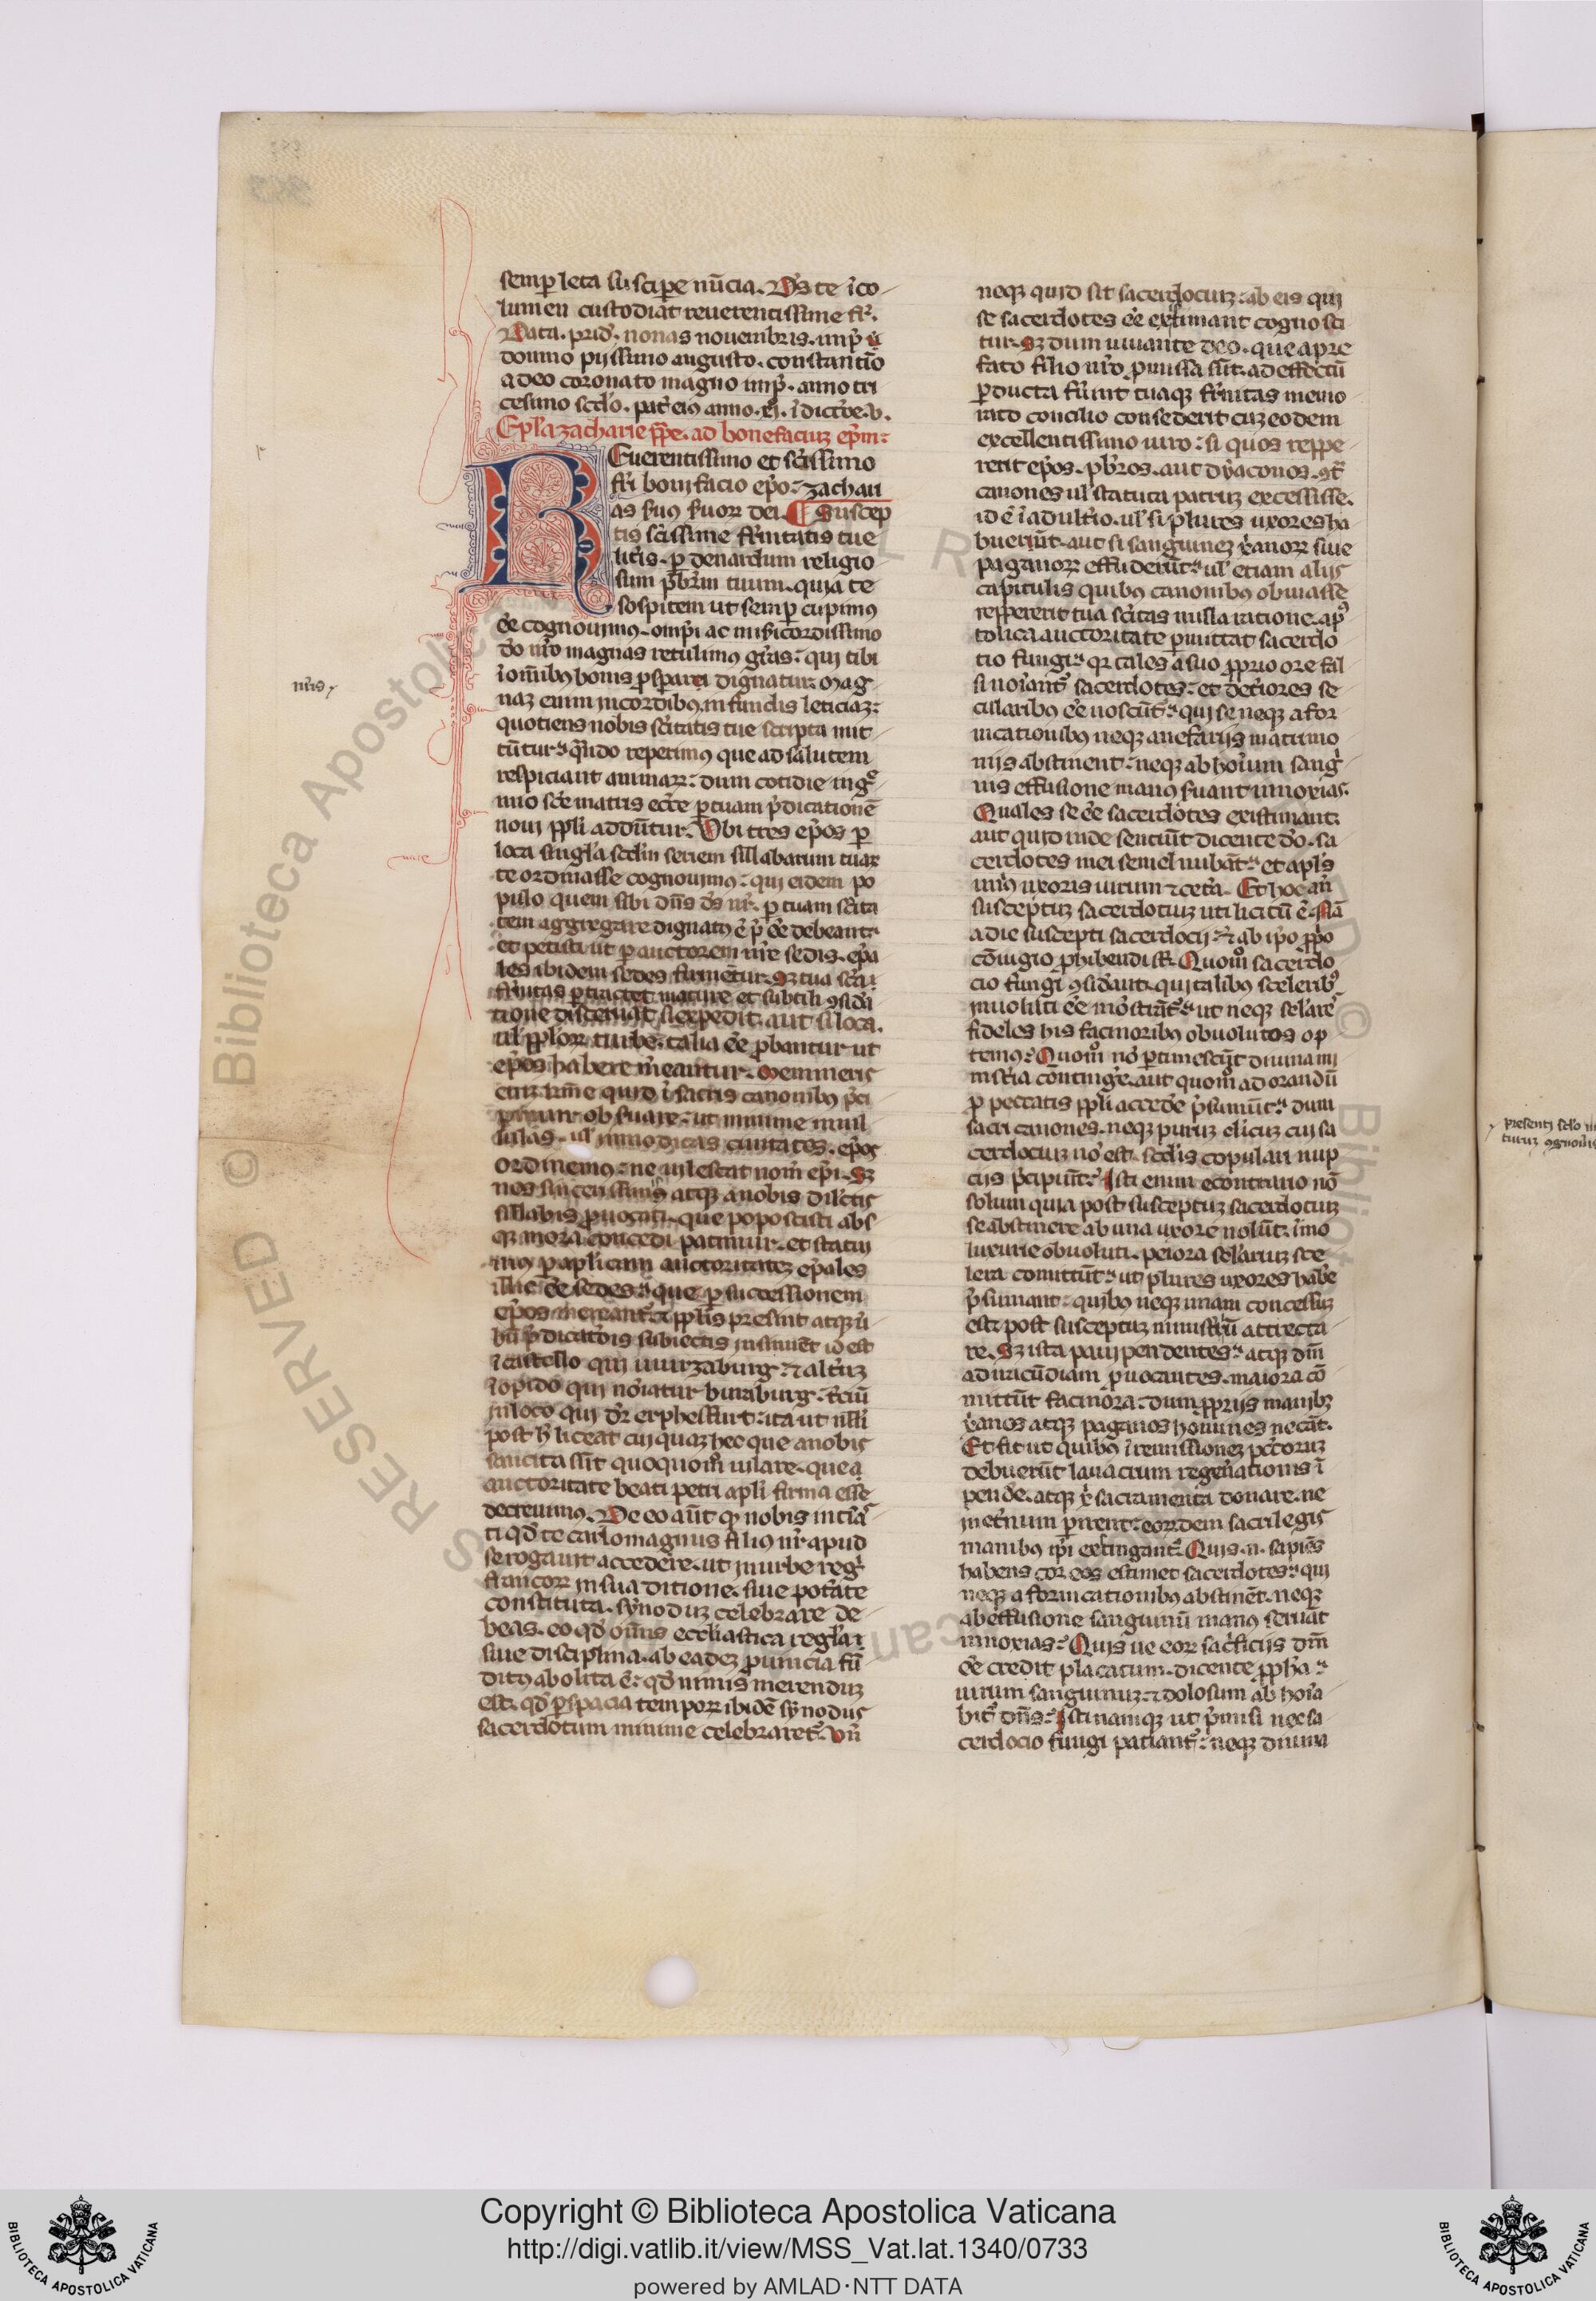 semꝑ leta suscipe nūcia. Ds te ico
lumen custodiat reuerentissime fr̄.
Data. prid̄. nonas nouembris. imꝑ
domno pijssimo augusto. constantīo
adeo coronato magno imꝑ. anno tri
cesimo scd̄o. pat̄ eiꝰ anno. ij. idictōe. v.
Epl̄a zacharie ꝑpe. ad bonefaciuꝫ ep̄m:
REuerentissimo et sc̄issimo
fr̄i bonifacio ep̄o: zachari
as ẜuꝰ ẜuoꝝ dei. ¶ Suscep
tis sc̄issime fr̄nitatis tue
litt̄is. ꝑ denardum religio
sum p̄brm̄ tuum. quia te
sospitem ut semꝑ cupimꝰ
eē cognouimꝰ. omp̄i ac mīẜicordissimo
do nr̄o magnas retulimꝰ gr̄as: qui tibi
ioм̄ibꝰ bonis ꝓsꝑari dignatur. Mag
naꝫ enim in cordibꝰ infundis leticiaꝫ:
quotiens nobis sc̄itatis tue scripta mit
tūtur: qn̄do reperimꝰ que ad salutem
respiciant animaꝝ: dum cotidie ing̊
mio sc̄e matris ecc̄e ꝑ tuam p̄dicationē
noui ppl̄i addūtur. Vbi tres ep̄os ꝑ
loca singl̄a scd̄m seriem sill̄abarum tuaꝝ
te ordinasse cognouimꝰ: qui eidem po
pulo quem sibi dn̄s ds̄ nr̄. ꝑ tuam sc̄ita
tem aggregare dignatꝰ ē p̄ eē debeant:
et petisti ut ꝑ auctorem nr̄e sedis. ep̄a
les ibidem sedes firmētur. Sꝫ tua sc̄a
fr̄nitas ꝑtractet mature et subtili ꝯsid̄a
tione discernat si expedit. aut si loca.
ul̄ ppl̄oꝝ turbe. talia eē ꝓbantur ut
ep̄os habere m̄eantur. Memineris
quid ī sacris canonibꝰ p̄ci
pimur obẜuare. ut minime in uil
lulas. ul̄ in modicas ciuitates. ep̄os
ordinemꝰ: ne uilescat nom̄ ep̄i. Sꝫ
nos sincerissimis atqꝫ anobis dil̄ctis
sillabis ꝓuocati. que poposcisti abs
qꝫ mora concedi patimur. et statui
mꝰ ꝑ apl̄icam auctoritateꝫ ep̄ales
illic eē sedes: que ꝑ successionem
ep̄os mereant̄. ⁊ ppl̄is presint atqꝫ ū
bū p̄dicatōis subiectis insinuēt id est
ī castello qui uuirzaburg. ⁊ alt̄uꝫ
ī opido qui noīatur buraburg. t̄ciū
in loco qui dr̄ erphesfurt: ita ut nll̄i
post h̄ liceat cui quaꝫ hec que anobis
sancita sūt quoquom̊ uilare. que a
auctoritate beati petri apl̄i firma esse
decreuimꝰ. De eo aūt ꝙ nobis intīa
ti qd̄ te carlomagnus filiꝰ nr̄ apud
se rogauit accedere. ut in urbe reg̊
francoꝝ in sua ditione. siue potāte
constituta. synoduꝫ celebrare de
beas. eo qd̄ om̄is ecclīastica regl̄ar
siue disciplina. ab eadeꝫ ꝓuincia fū
ditꝰ abolita ē: qd̄ nimis merenduꝫ
est. qd̄ ꝑ spacia tempoꝝ ibidē synodus
sacerdotum minime celebraret̄. Vn̄
neqꝫ quid sit sacerdociuꝫ: ab eis qui
se sacerdotes eē extimant cogno sci
tur. Sꝫ dum iuuante deo. que apre
fato filio nr̄o ꝓmissa sūt. ad effectū
ꝑducta fūint tuaqꝫ fr̄nitas memo
rato concilio consederit cuꝫ eodem
excellentissimo uiro: si quos reppe
rerit ep̄os. p̄bros. aut dyaconos. ꝯt̄
canones ul̄ statuta patruꝫ excessisse.
id ē ī adult̄io. ul̄ si plures uxores ha
buerūt. aut si sanguineꝫ xp̄anoꝝ siue
paganoꝝ effuderūt: ul̄ etiam alijs
capitulis quibꝰ canonibꝰ obuiasse
reppererit tua sc̄itas nulla ratione. apꝰ
tolica auctoritate ꝑmittat sacerdo
tio fungi: qr̄ tales a suo ꝓprio ore fal
si noīant̄ sacerdotes: et det̄iores se
cularibꝰ eē noscūt̄: qui se neqꝫ a for
nicationibꝰ neqꝫ anefarijs matrimo
nijs abstinent: neqꝫ ab hoīum sang̊
nis effusione manꝰ ẜuant innoxias.
Quales se eē sacerdotes existimant.
aut quid inde sentiūt dicente do. sa
cerdotes mei semel nubāt: et apl̄s
uniꝰ uxoris uirum ⁊ cet̄a. Et hoc an̄
susceptuꝫ sacerdotiuꝫ uti licitū ē. Nā
a die suscepti sacerdocij: ⁊ ab ip̄o ꝓpo
cōiugio ꝓhibendi sūt. Quom̊ sacerdo
cio fungi ꝯsid̄ant. qui talibꝰ sceleribꝰ
inuoluti eē mōstrāt̄: ut neqꝫ sel̄are
fideles his facinoribꝰ obuolutos op
temꝰ: Quom̊ nō ꝑtimescūt diuina mi
nistīa conting̊e. aut quom̊ ad orandū
ꝓ peccatis ppl̄i accede p̄sumūt: dum
sacri canones. neqꝫ puruꝫ cl̄icuꝫ cui sa
cerdociuꝫ nō est. scd̄is copulari nup
cijs p̄cipiūt: Isti enim econtrario nō
solum quia post susceptuꝫ sacerdociuꝫ
se abstinere ab una uxore nolūt. īmo
luxurie obuoluti. peiora sel̄aruꝫ sce
lera comittūt: ut plures uxores hab̄e
p̄sumant: quibꝰ neqꝫ unam concessuꝫ
est post susceptuꝫ minist̄iū attrecta
re. Sꝫ ista paui pendentes: atqꝫ dm̄
ad iracūdiam ꝓuocantes. maiora cō
mittūt facinora: dum ꝓprijs manibꝫ
xp̄anos atqꝫ paganos homines necāt.
Et fit ut quibꝰ ī remissioneꝫ pc̄toruꝫ
debuerūt lauacrum regen̄ationis ī
pende. atqꝫ xp̄i sacramenta donare. ne
inet̄num ꝑirent: eoꝝdem sacrilegis
manibꝰ ip̄i extingant̄. Quis .n. sapiēs
habens cor eos estimet sacerdotes: qui
neqꝫ a fornicationibꝰ abstinēt. neqꝫ
ab effusione sanguinū manꝰ seruāt
innoxias: Quis ue eoꝝ sac̄ficijs dm̄
eē credit placatum. dicente ꝓpha:
uirum sanguinuꝫ. ⁊ dolosum ab hoīa
bit̄ dn̄s: Isti namqꝫ ut p̄misi nec sa
cerdocio fungi patiant̄: neqꝫ diuina
nr̄is
presenti scl̄o
turuꝫ
RESERVED © Biblioteca Apostolica
Copyright © Biblioteca Apostolica Vaticana
http://digi.vatlib.it/view/MSS_Vat.lat.1340/0733
powered by AMLAD·NTT DATA
BIBLIOTECA APOSTOLICA VATICANA
BIBLIOTECA APOSTOLICA VATICANA